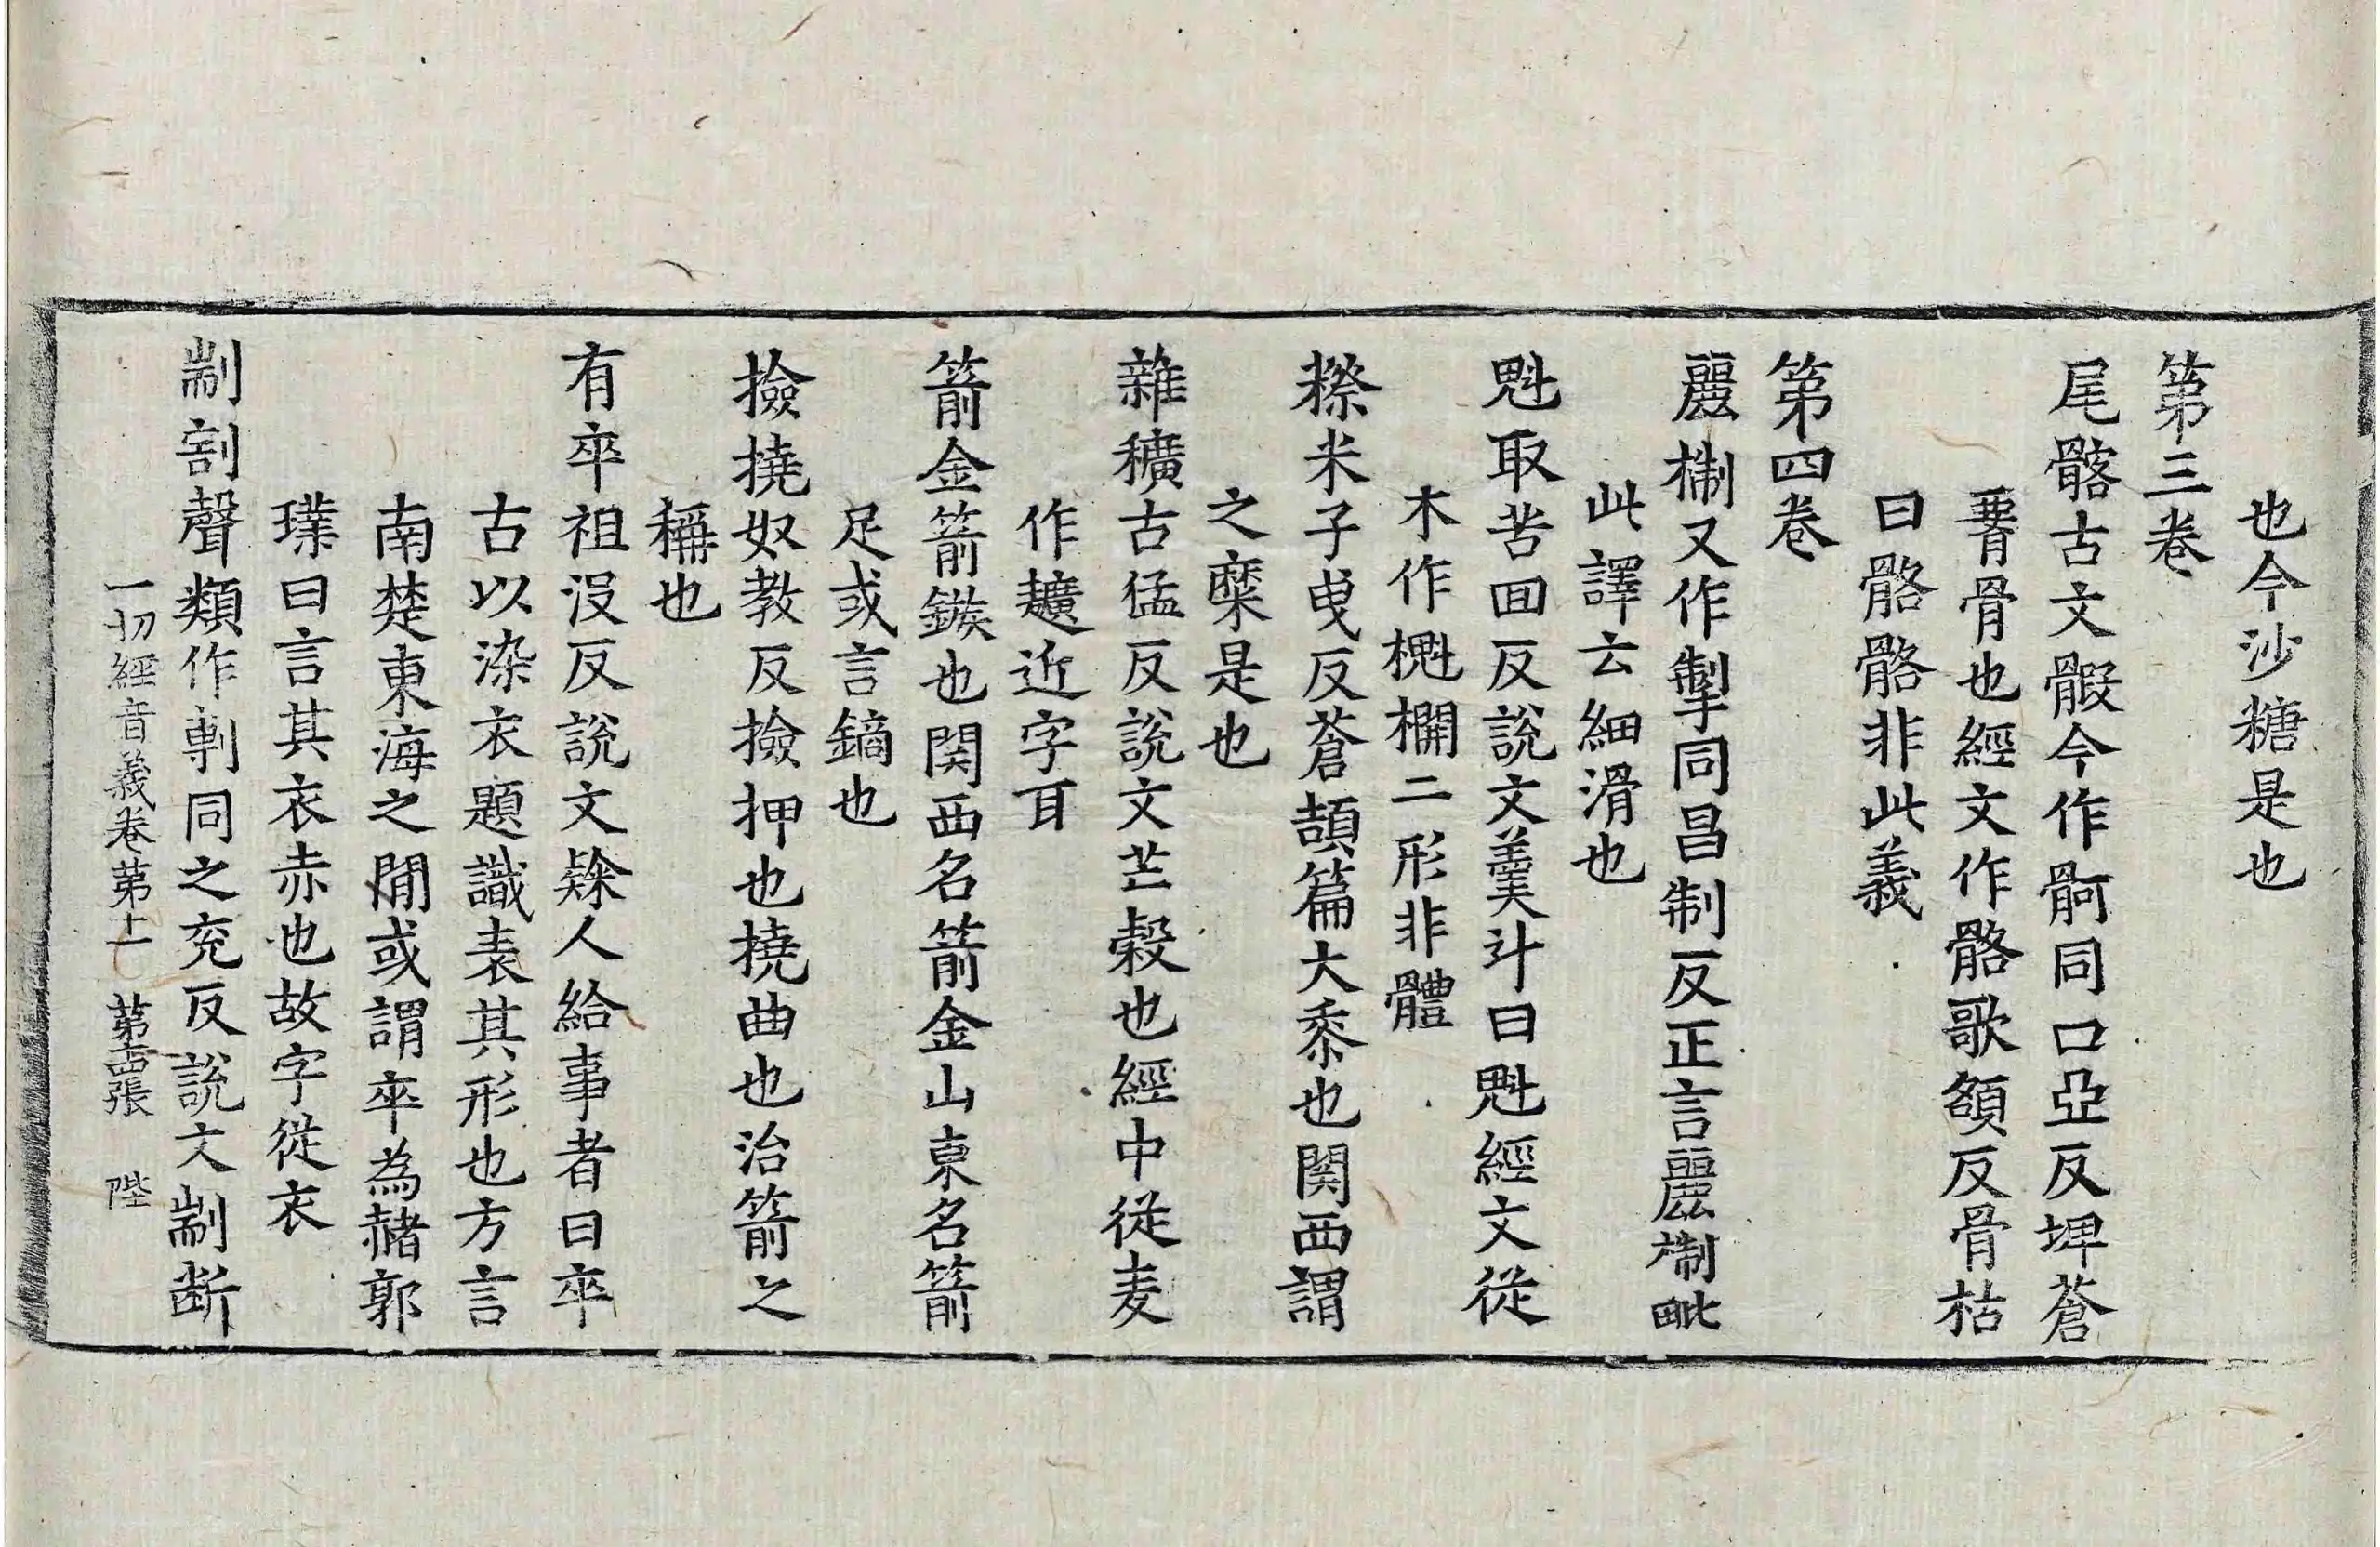 也今沙糖是也
第三卷
尾髂古文䯊今作䯊同口亞反埤蒼
䯒骨也經文作骼歌頟反骨枯
曰骼骼非此義
第四卷
䴡㨖又作掣同昌制反正言䴡㨖毗
此譯云細滑也
魁取苦回反說文羹斗曰魁經文從
木作櫆欄二形非體
穄米子曳反蒼頡篇大黍也関西謂
之穈是也
雜穬古猛反說文芒穀也經中從麦
作䵃近字耳
箭金箭鏃也関西名箭金山東名箭
足或言鏑也
撿撓奴教反撿押也撓曲也治箭之
稱也
有卒祖沒反說文隸人給事者曰卒
古以染衣題識表其形也方言
南楚東海之閒或謂卒為赭郭
璞曰言其衣赤也故字從衣
剬割聲類作剸同之兖反說文剬断
一切經音義卷第十一 第十四張 陛